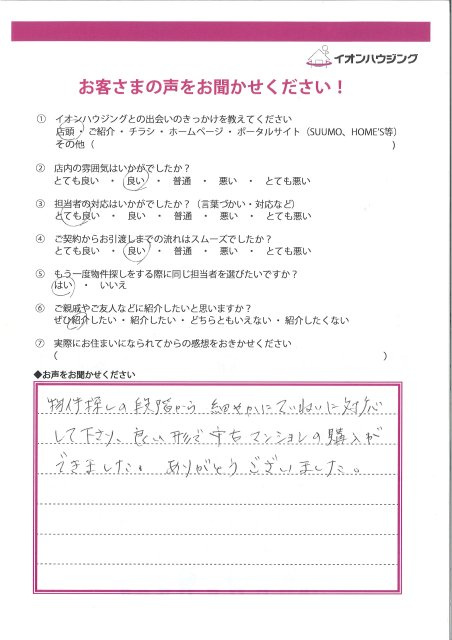 イオンハウジング
お客さまの声をお聞かせください！
① イオンハウジングとの出会いのきっかけを教えてください
店頭 ・ ご紹介 ・ チラシ ・ ホームページ ・ ポータルサイト（SUUMO、HOME'S等）
その他（ ）
② 店内の雰囲気はいかがでしたか？
とても良い ・ 良い ・ 普通 ・ 悪い ・ とても悪い
③ 担当者の対応はいかがでしたか？（言葉づかい・対応など）
とても良い ・ 良い ・ 普通 ・ 悪い ・ とても悪い
④ ご契約からお引渡しまでの流れはスムーズでしたか？
とても良い ・ 良い ・ 普通 ・ 悪い ・ とても悪い
⑤ もう一度物件探しをする際に同じ担当者を選びたいですか？
はい ・ いいえ
⑥ ご親戚やご友人などに紹介したいと思いますか？
ぜひ紹介したい ・ 紹介したい ・ どちらともいえない ・ 紹介したくない
⑦ 実際にお住まいになられてからの感想をおきかせください
（ ）
◆お声をお聞かせください
物件探しの段階から 細やかにていねいに対応
して下さり、良い形で中古マンションの購入が
できました。 ありがとうございました。